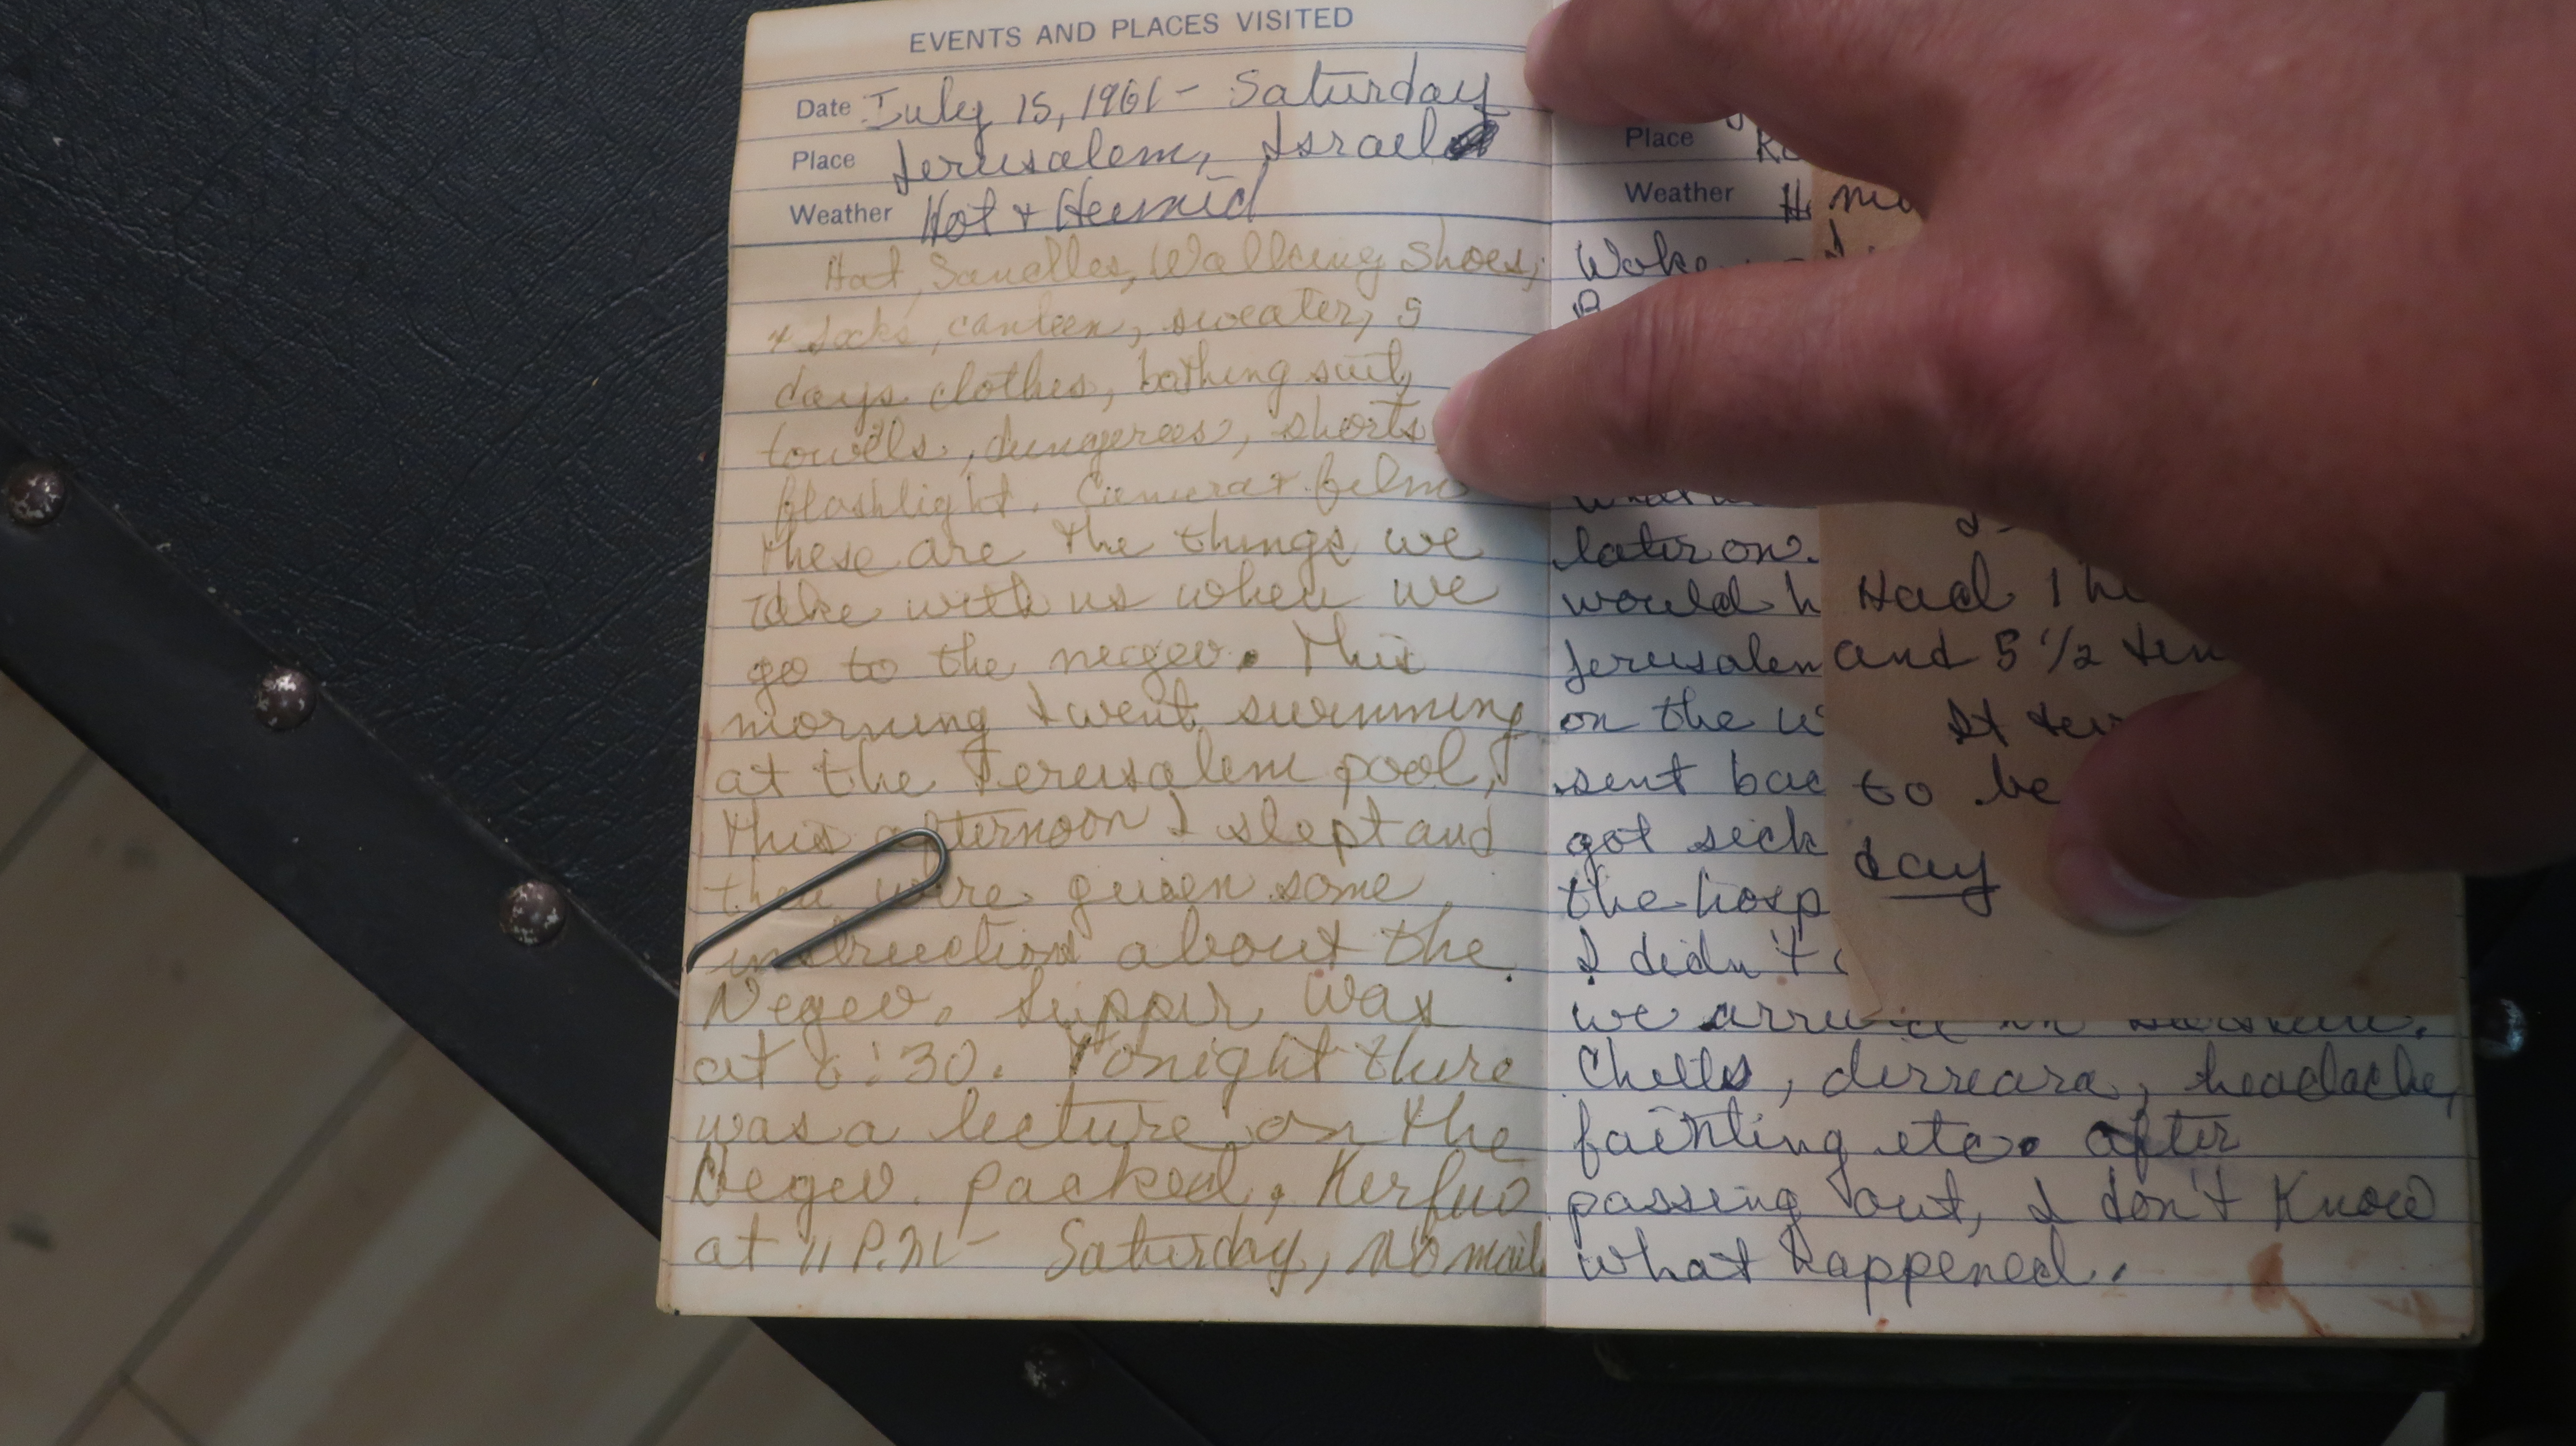 EVENTS AND PLACES VISITED
Date July 15, 1961 - Saturday
Place Jerusalem, Israel
Weather Hot + Heumid
Hot, Sandles, Wallking Shoes,
+ socks, canteen, sweater, 5
days clothes, bathing suit,
towels, dungerees, shorts
flashlight. Camera + films
these are the things we
take with us when we
go to the negev. This
morning I went swimming
at the Jerusalem pool,
this afternoon I slept and
then were given some
instructions about the
Negev. Supper was
at 6:30. Tonight there
was a lecture on the
Negev. packed, Kerfluo
at 11 P.M - Saturday, no mail
Place
Weather H
Woke
later on.
would h
Jerusalem
on the
sent bac
got sick
the hosp
I didn't
we arrived in
Chills, dirreara, headache,
fainting etc. after
passing out, I don't Know
what happened.
Had 1
and 5 1/2
It
to be
day